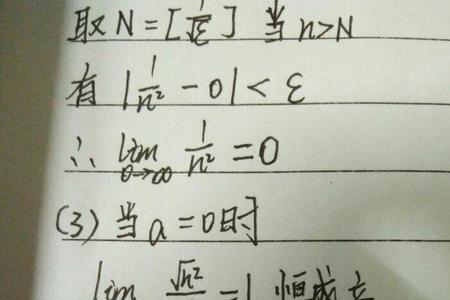 取 N = [1/√ε] 当 n>N
有 |1/n² - 0| < ε
∴ lim 0→∞ 1/n² = 0
(3) 当 a = 0时
lim √n² = 1 恒成立